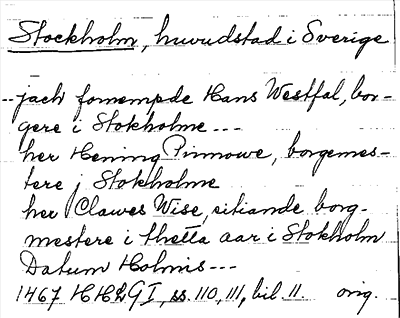 Stockholm, huvudstad i Sverige
--jach fornempde Hans Westfal, bor-
gere i Stokholme---
her Hening Pinnowe, borgemes-
tere j Stokholme
her Clawes Wise, sitiande borg-
mestere i thetta aar i Stokholm
Datum Holmis---
1467 HH2G I, ss. 110, 111, bil. 11. orig.